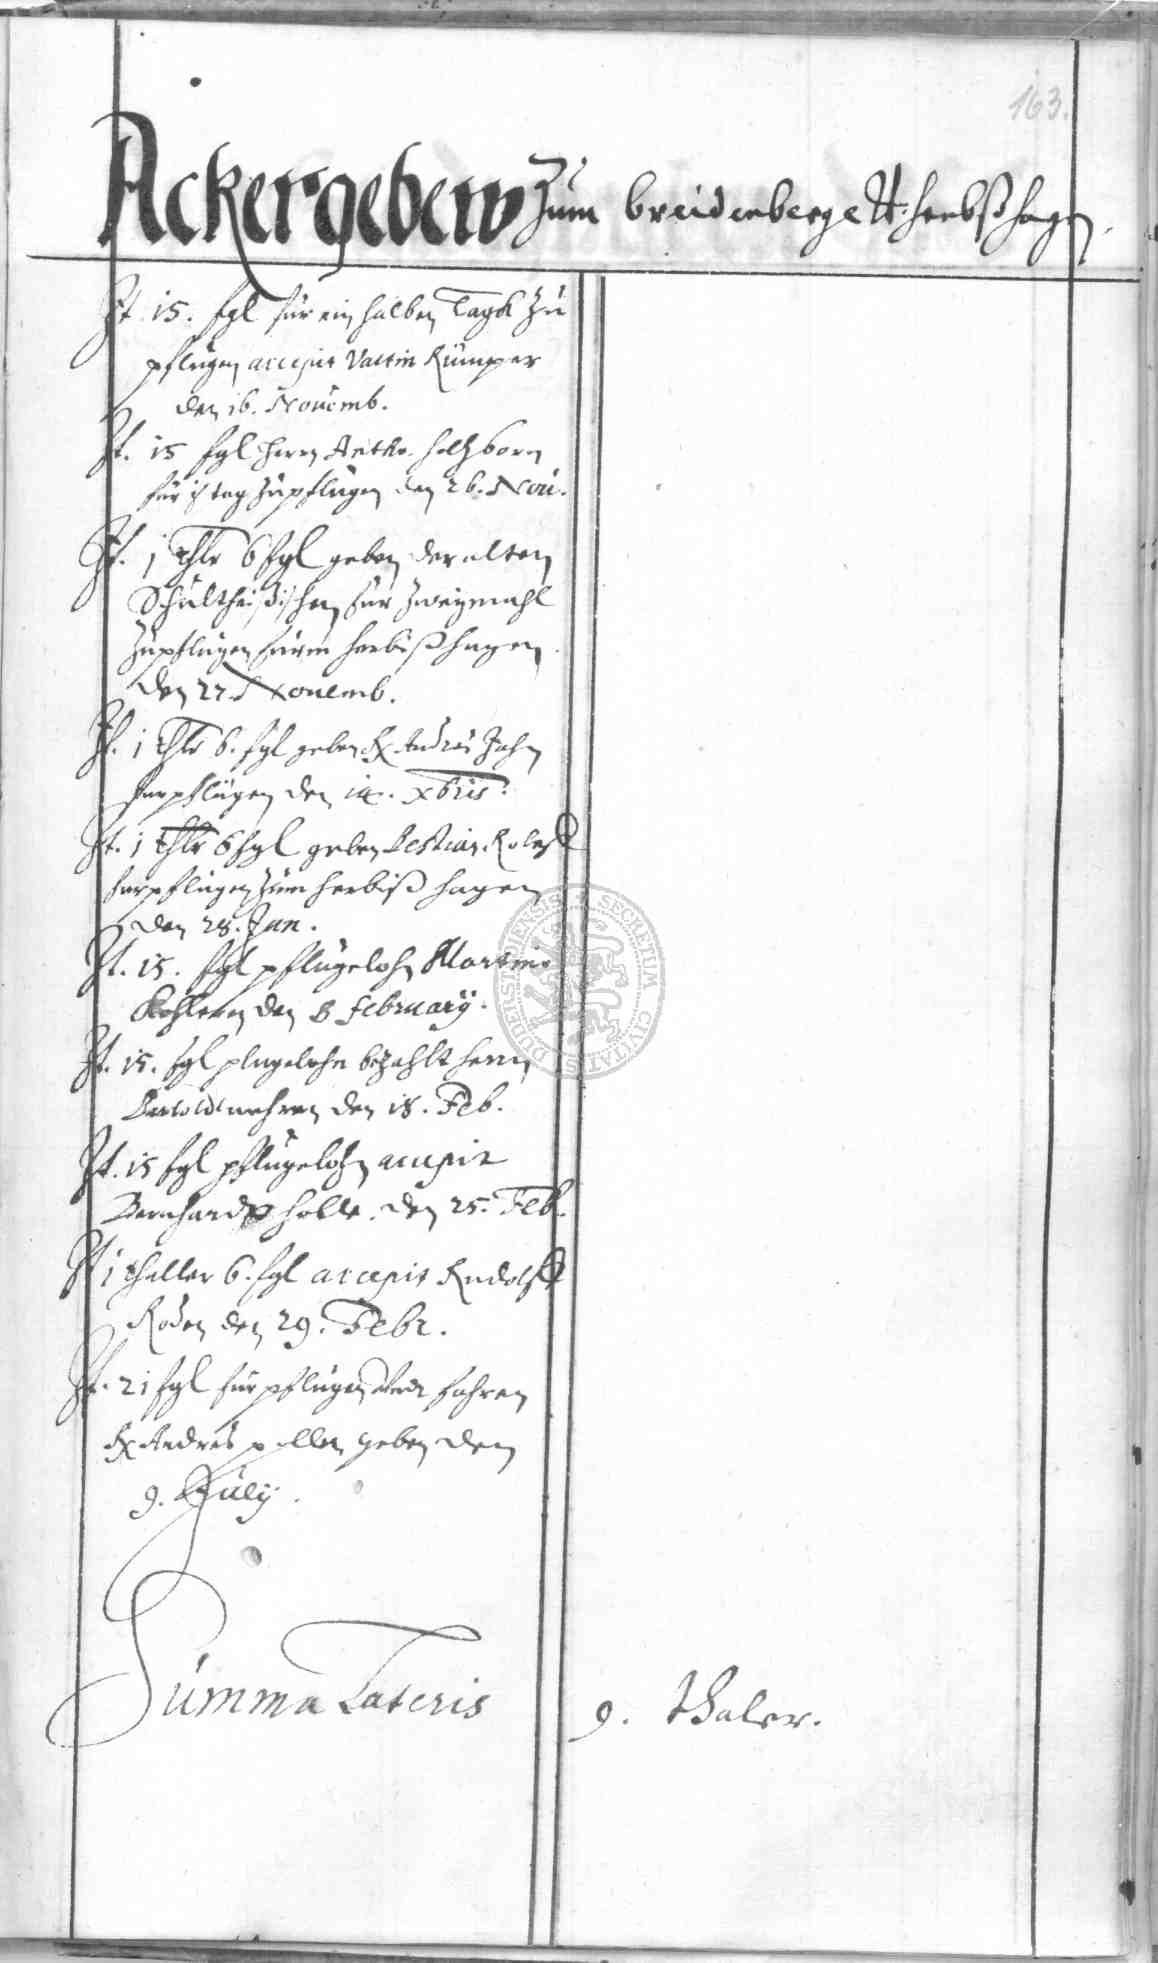 163.
Ackergebew Zum breidenberge Vt herbßhagen
It 15. ßgl für ein halben Tagk zu
pflugen accepit Valtin Kümpper
den 16. Nouemb.
It. 15 ßgl herrn Arthr. holtzborn
für ½ tag zupflugen den 26. Nou.
It. 1 Thlr 6 ßgl geben der alten
Schultheißischen für zweymahl
Zupflugen fürm herbißhagen
den 27. Nouemb.
It. 1 Thlr 6. ßgl geben H. Andres Jahn
fur pflügen den 14. Xbris.
It. 1 Thlr 6 ßgl geben Bestian
fur pflugen zum herbiß hagen
den 28. Jan.
It. 15. ßgl pflugelohn Martino
Kohlern den 8 february.
It. 15. ßgl plugelohn bezahlt herrn
Bartold den 18. Feb.
It. 15 ßgl pflugelohn accepit
Bernhardt holle. den 25. Feb.
It 1 thaller 6. ßgl accepit Rudolff
Roden den 29. Febr.
It. 21 ßgl für pflugen fahren
H Andres geben den
9. July.
Summa Lateris 9. thaler.
SECRETUM CIVITATIS DUDERSTADIENSIS